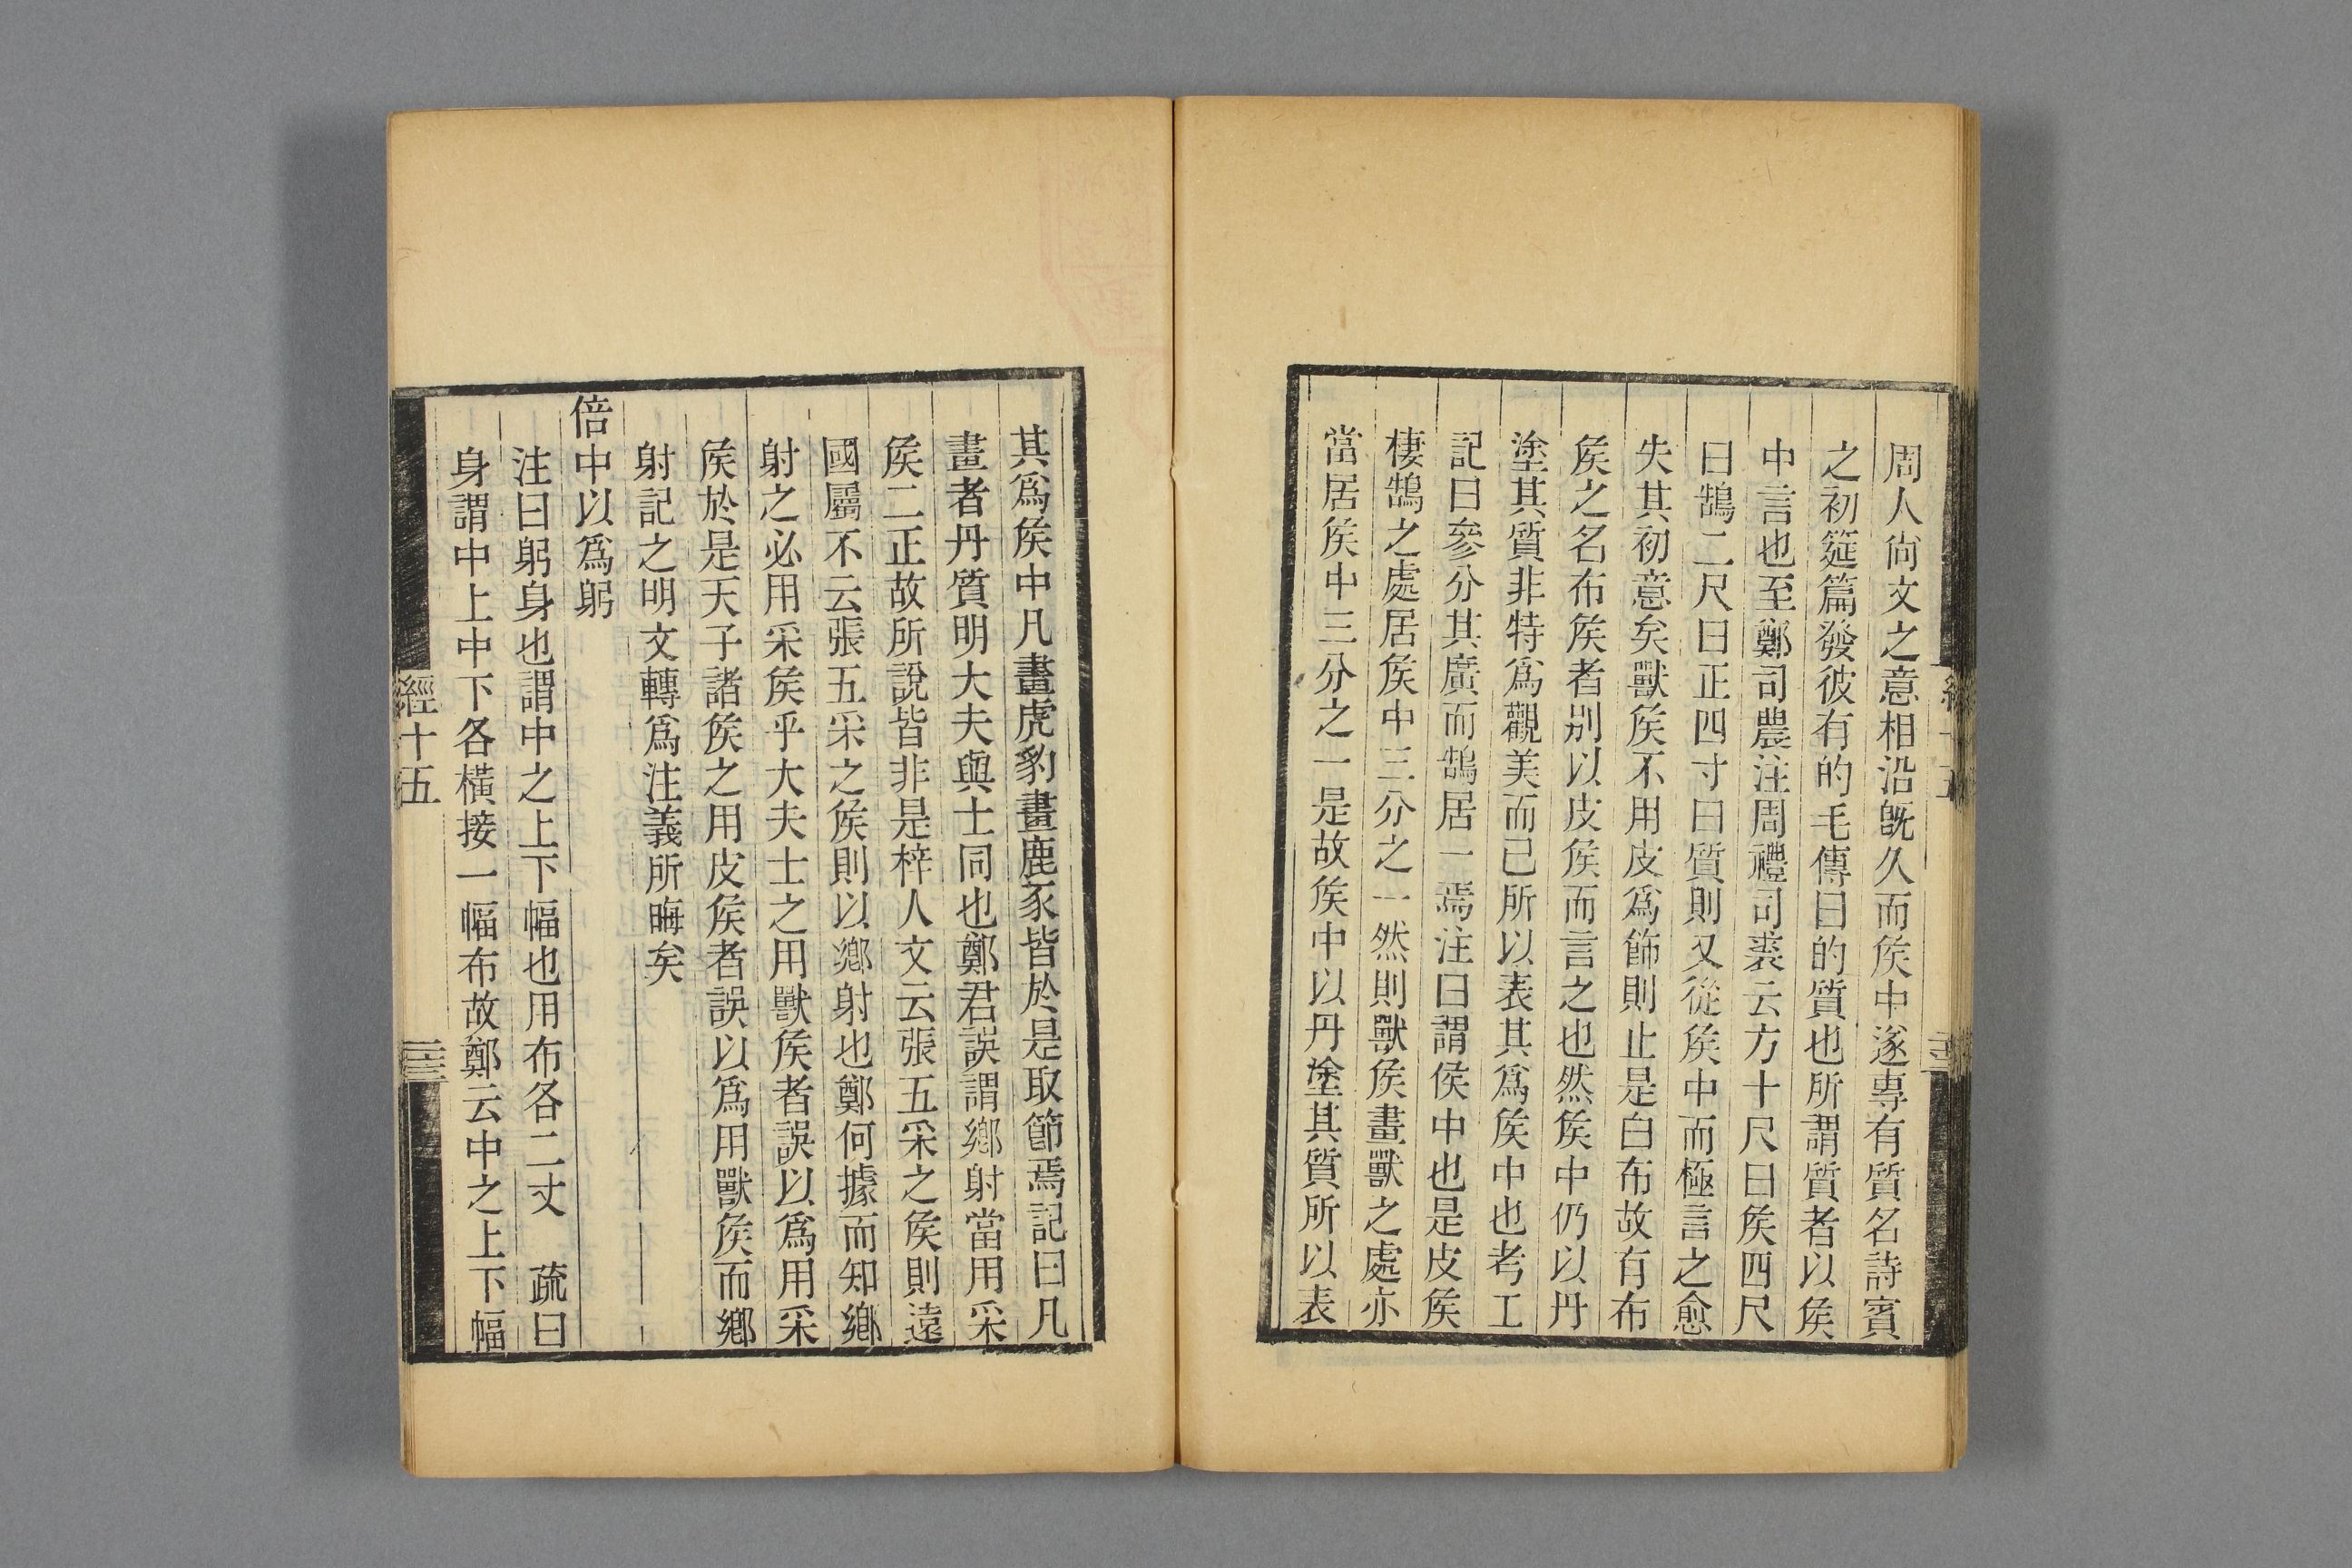 周人尙文之意相沿旣久而矦中遂專有質名詩賓
之初筵篇發彼有的毛傳曰的質也所謂質者以矦
中言也至鄭司農注周禮司裘云方十尺曰矦四尺
曰鵠二尺曰正四寸曰質則又從矦中而極言之愈
失其初意矣獸矦不用皮爲飾則止是白布故有布
矦之名布矦者別以皮矦而言之也然矦中仍以丹
塗其質非特爲觀美而已所以表其爲矦中也考工
記曰參分其廣而鵠居一焉注曰謂侯中也是皮矦
棲鵠之處居矦中三分之一然則獸矦畫獸之處亦
當居矦中三分之一是故矦中以丹塗其質所以表
其爲矦中凡畫虎豹畫鹿豕皆於是取節焉記曰凡
畫者丹質明大夫與士同也鄭君誤謂鄕射當用采
矦二正故所說皆非是梓人文云張五采之矦則遠
國屬不云張五采之矦則以鄕射也鄭何據而知鄕
射之必用采矦乎大夫士之用獸矦者誤以爲用采
矦於是天子諸矦之用皮矦者誤以爲用獸矦而鄕
射記之明文轉爲注義所晦矣
倍中以爲躬
注曰躬身也謂中之上下幅也用布各二丈　疏曰
身謂中上中下各橫接一幅布故鄭云中之上下幅
經十五
三三